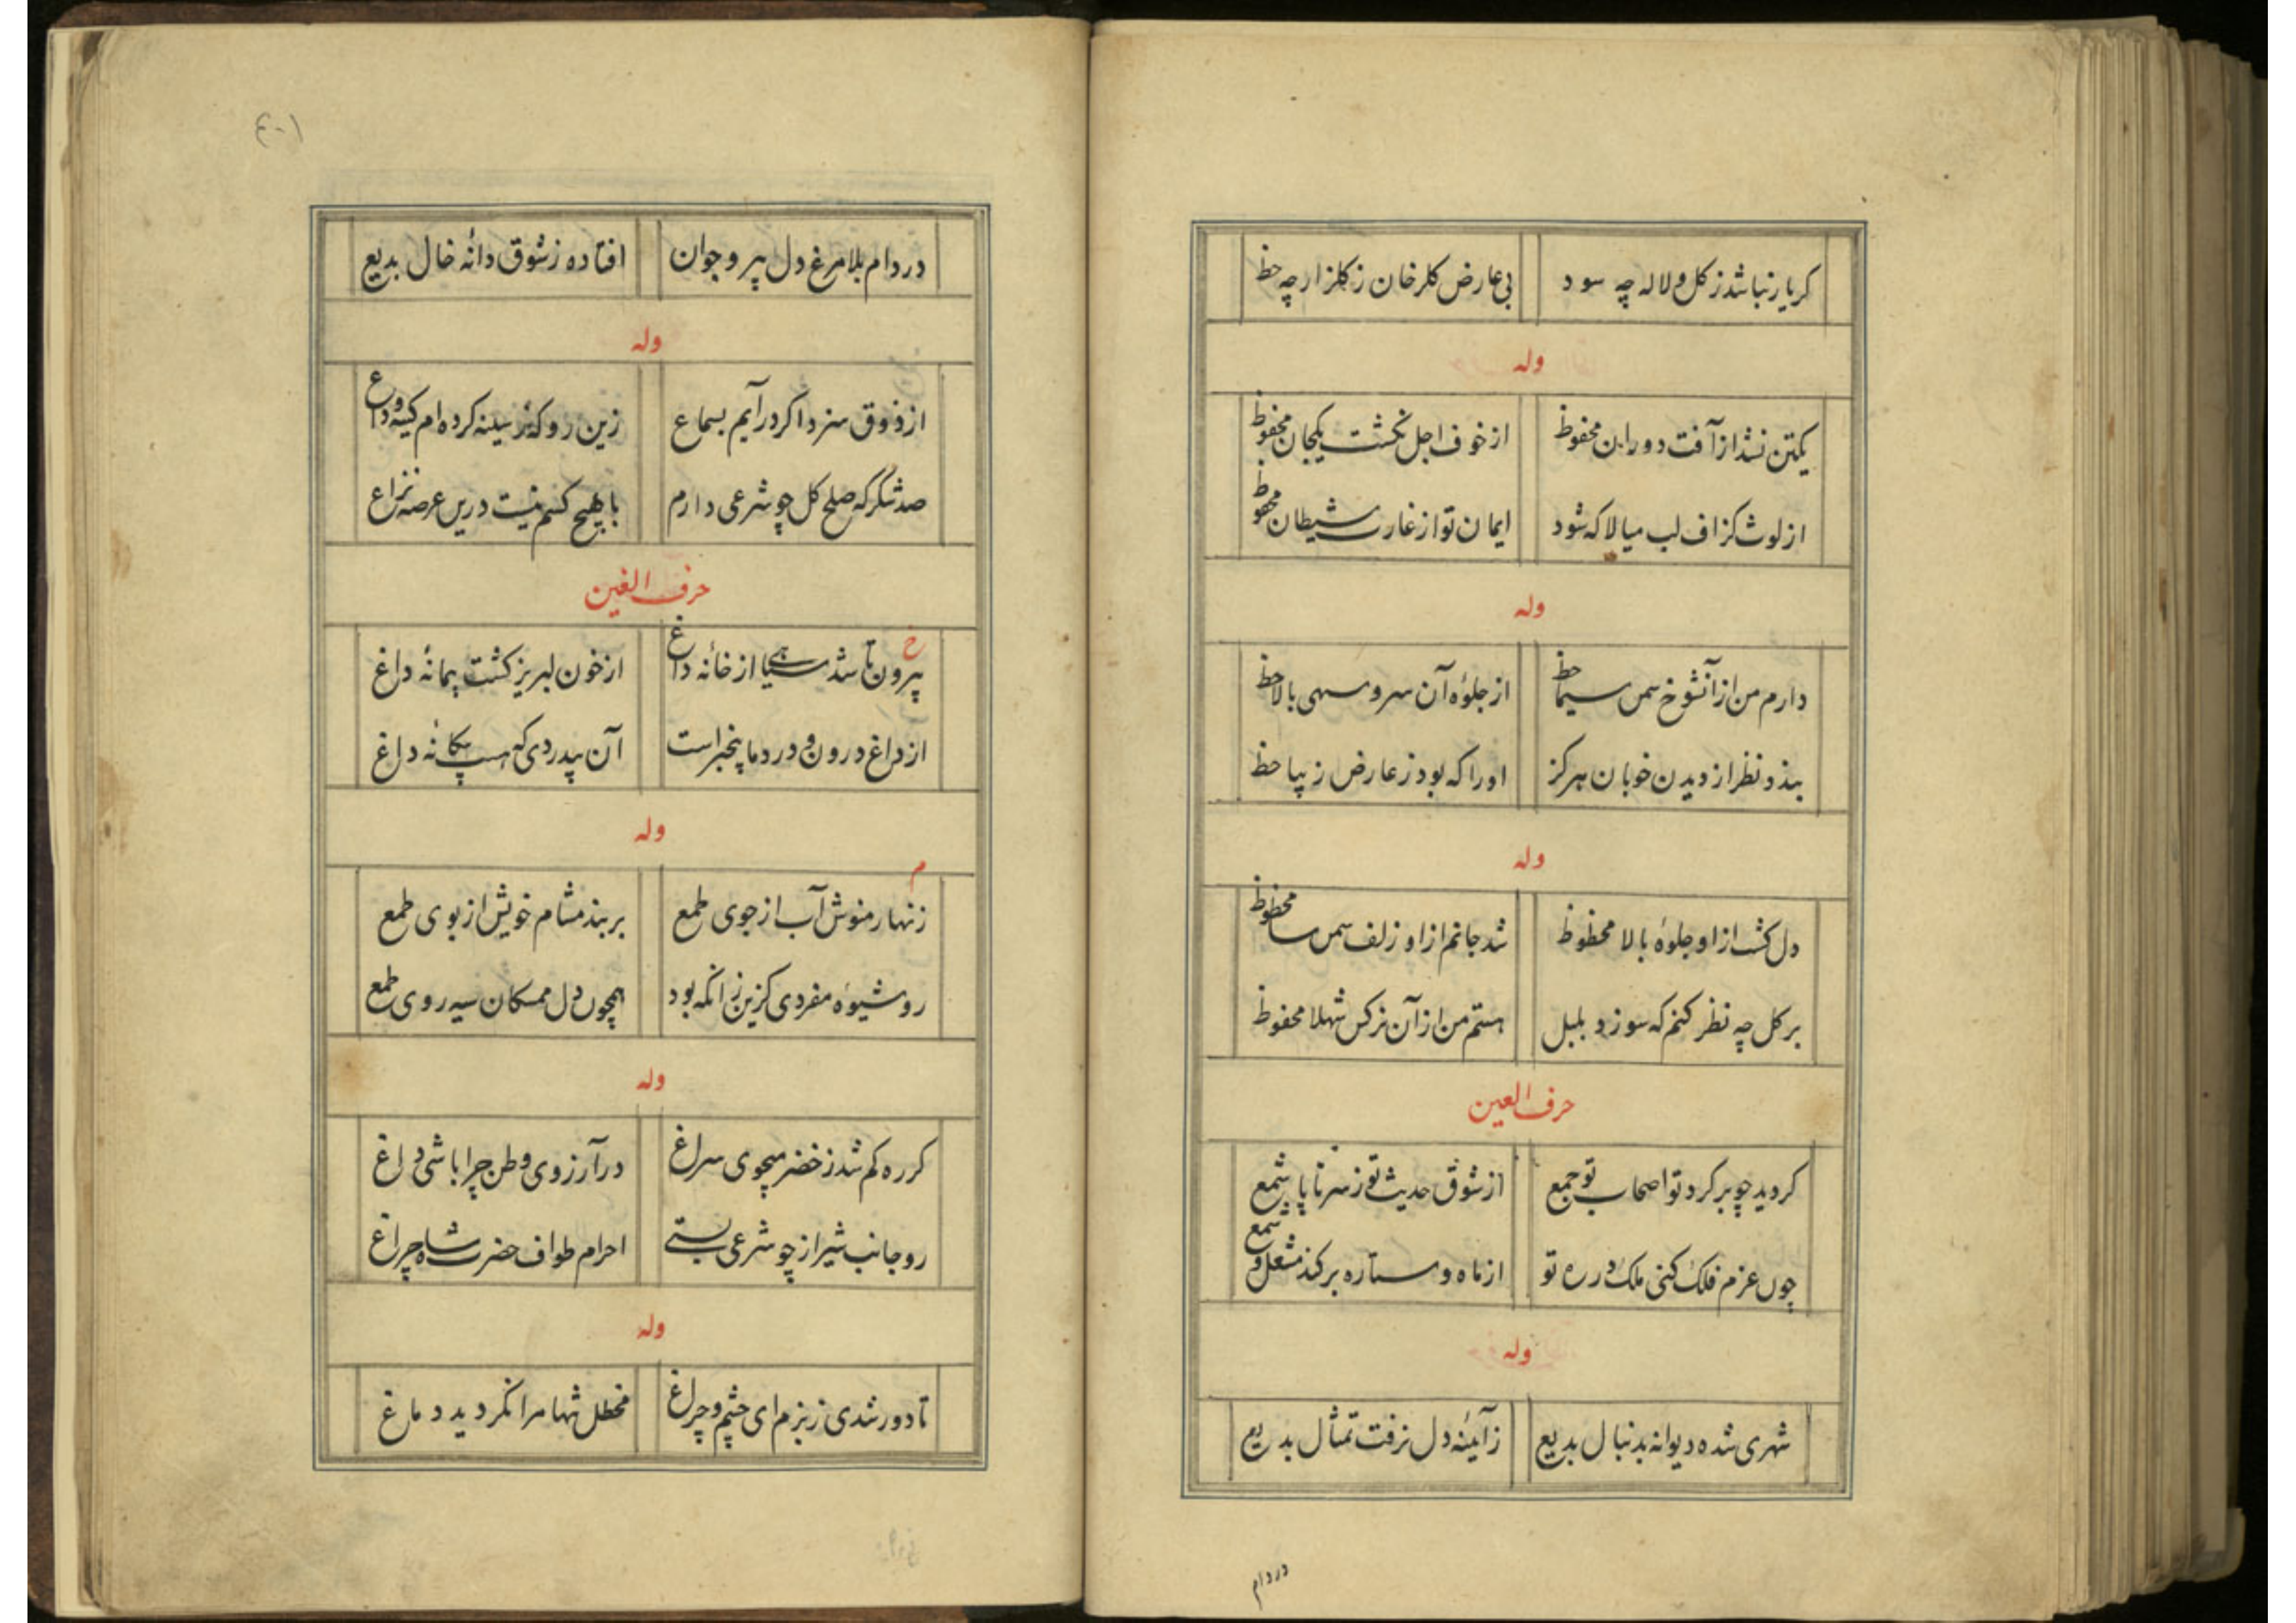 کر یار نباشد ز کل و لاله چه سود بی عارض کلرخان ز کلزار چه حظ
وله
یکتن نشد از آفت دوران محفوظ از خوف اجل نکشت یکجان محفوظ
از لوث کزاف لب میالا که شود ایمان تو از غارت شیطان محفوظ
وله
دارم من از آنشوخ سمن سیما حظ از جلوهٔ آن سرو سهی بالا حظ
بندد نظر از دیدن خوبان هرکز اورا که بود ز عارض زیبا حظ
وله
دل کشت از او جلوهٔ بالا محظوظ شد جانم از او زلف سمن سا محظوظ
بر کل چه نظر کنم که سوزد بلبل هستم من از آن نرکس شهلا محفوظ
حرف العین
کردید چو بر کرد تو اصحاب تو جمع از شوق حدیث تو ز سر تا پا شمع
چون عزم فلک کنی ملک در ره تو از ماه و ستاره برکند مشعل و شمع
وله
شهری شده دیوانه بدنبال بدیع ز آئینه دل نرفت تمثال بدیع
در دام
۴۰۱
در دام بلا مرغ دل پیر و جوان افتاده ز شوق دانه خال بدیع
وله
از ذوق سزد اکر در آیم بسماع زین رو که ز سینه کرده ام کینه وداع
صد شکر که صلح کل چو شرعی دارم با هیچ کسم نیست درین عرصه نزاع
حرف الغین
خ
بیرون تا شد سیا از خانه داغ از خون لبریز کشت پیمانه داغ
از داغ درون و درد ما بیخبر است آن بیدردی که هست بیکانه داغ
وله
م
زنهار منوش آب از جوی طمع بربند مشام خویش از بوی طمع
رو شیوه مفردی کزین زانکه بود همچون دل ممسکان سیه روی طمع
وله
کر ره کم شد ز خضر میجوی سراغ در آرزوی وطن چرا باشی داغ
رو جانب شیراز چو شرعی بستی احرام طواف حضرت شاه چراغ
وله
تا دور شدی ز بزم ای چشم و چراغ محظل شها مرا نکردید دماغ